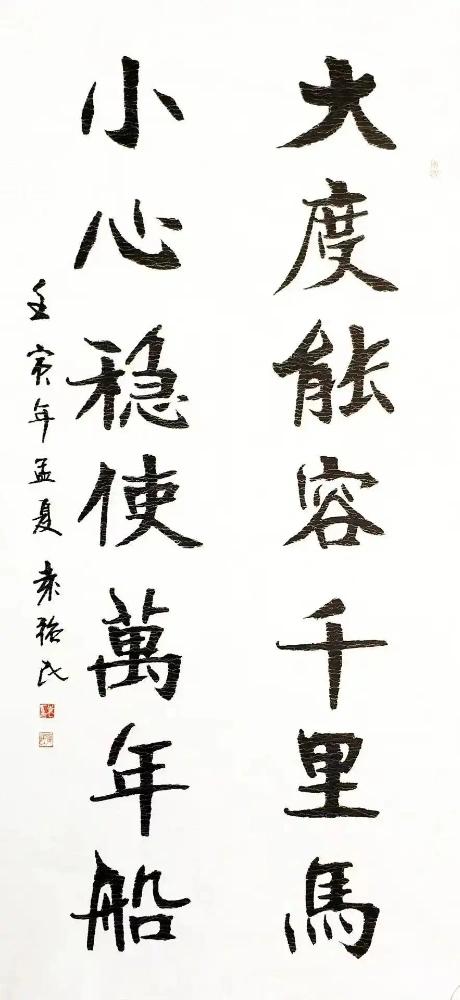 大度能容千里馬
小心稳使萬年船
壬寅年孟夏 袁裕民